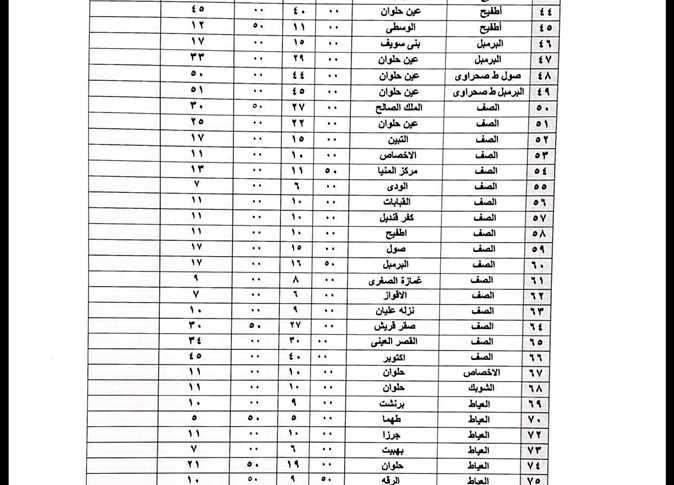 ٤٤ أطفيح عين حلوان ٠٠ ٤٠ ٠٠ ٤٥
٤٥ أطفيح الوسطى ٠٠ ١١ ٥٠ ١٢
٤٦ البرميل بنى سويف ٠٠ ١٥ ٠٠ ١٧
٤٧ البرميل عين حلوان ٠٠ ٢٩ ٠٠ ٣٣
٤٨ صول ط صحراوى عين حلوان ٠٠ ٤٤ ٠٠ ٥٠
٤٩ البرمبل ط صحراوى عين حلوان ٠٠ ٤٥ ٠٠ ٥١
٥٠ الصف الملك الصالح ٠٠ ٢٧ ٥٠ ٣٠
٥١ الصف عين حلوان ٠٠ ٢٢ ٠٠ ٢٥
٥٢ الصف التبين ٠٠ ١٥ ٠٠ ١٧
٥٣ الصف الاخصاص ٠٠ ١٠ ٠٠ ١١
٥٤ الصف مركز المنيا ٥٠ ١١ ٠٠ ١٣
٥٥ الصف الودى ٠٠ ٦ ٠٠ ٧
٥٦ الصف القبابات ٠٠ ١٠ ٠٠ ١١
٥٧ الصف كفر قنديل ٠٠ ١٠ ٠٠ ١١
٥٨ الصف اطفيح ٠٠ ١٠ ٠٠ ١١
٥٩ الصف صول ٠٠ ١٥ ٠٠ ١٧
٦٠ الصف البرمبل ٥٠ ١٦ ٠٠ ١٧
٦١ الصف غمازة الصغرى ٠٠ ٨ ٠٠ ٩
٦٢ الصف الاقواز ٠٠ ٦ ٠٠ ٧
٦٣ الصف نزله عليان ٠٠ ٩ ٠٠ ١٠
٦٤ الصف صقر قريش ٠٠ ٢٧ ٥٠ ٣٠
٦٥ الصف القصر العينى ٠٠ ٣٠ ٠٠ ٣٤
٦٦ الصف اكتوبر ٠٠ ٤٠ ٠٠ ٤٥
٦٧ الاخصاص حلوان ٠٠ ١٠ ٠٠ ١١
٦٨ الشوبك حلوان ٠٠ ١٠ ٠٠ ١١
٦٩ العياط برنشت ٠٠ ٩ ٠٠ ١٠
٧٠ العياط طهما ٠٠ ٥ ٥٠ ٥
٧٢ العياط جرزا ٠٠ ١٠ ٠٠ ١١
٧٣ العياط بهبيت ٠٠ ٦ ٠٠ ٧
٧٤ العياط حلوان ٠٠ ١٩ ٥٠ ٢١
٧٥ العياط الرقه ٥٠ ٩ ٥٠ ١٠